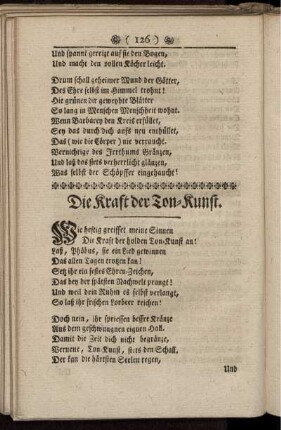 ( 126 )
Und spannt gereizt auf sie den Bogen,
Und macht den vollen Köcher leicht.
Drum schall geheimer Mund der Götter,
Des Ehre selbst im Himmel wohnt!
Die grünen dir geweyhte Blätter
So lang in Menschen Menschheit wohnt.
Wenn Barbarey den Kreis erfüllet,
Sey das durch dich aufs neu enthüllet,
Das (wie die Cörper) nie verraucht.
Vernichtige des Irrthums Gränzen,
Und laß das stets verherrlicht glänzen,
Was selbst der Schöpffer eingehaucht!
Die Kraft der Ton-Kunst.
Wie heftig greiffet meine Sinnen
Die Kraft der holden Ton-Kunst an!
Laß, Phöbus, sie ein Lied gewinnen
Das allen Tagen trotzen kan!
Setz ihr ein festes Ehren-Zeichen,
Das bey der spätsten Nachwelt prangt!
Und weil dein Ruhm es selbst verlangt,
So laß ihr frischen Lorbeer reichen!
Doch nein, ihr spriessen bessre Kränze
Aus dem geschwungnen eignen Hall.
Damit die Zeit dich nicht begränze,
Verneue, Ton-Kunst, stets den Schall,
Der kan die härtsten Seelen regen,
Und